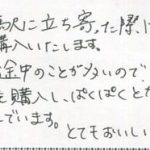 駅に立ち寄った際、
購入いたします。
途中のことが多いので
を購入し、ぱくぱくと
でいます。
とてもおいしい